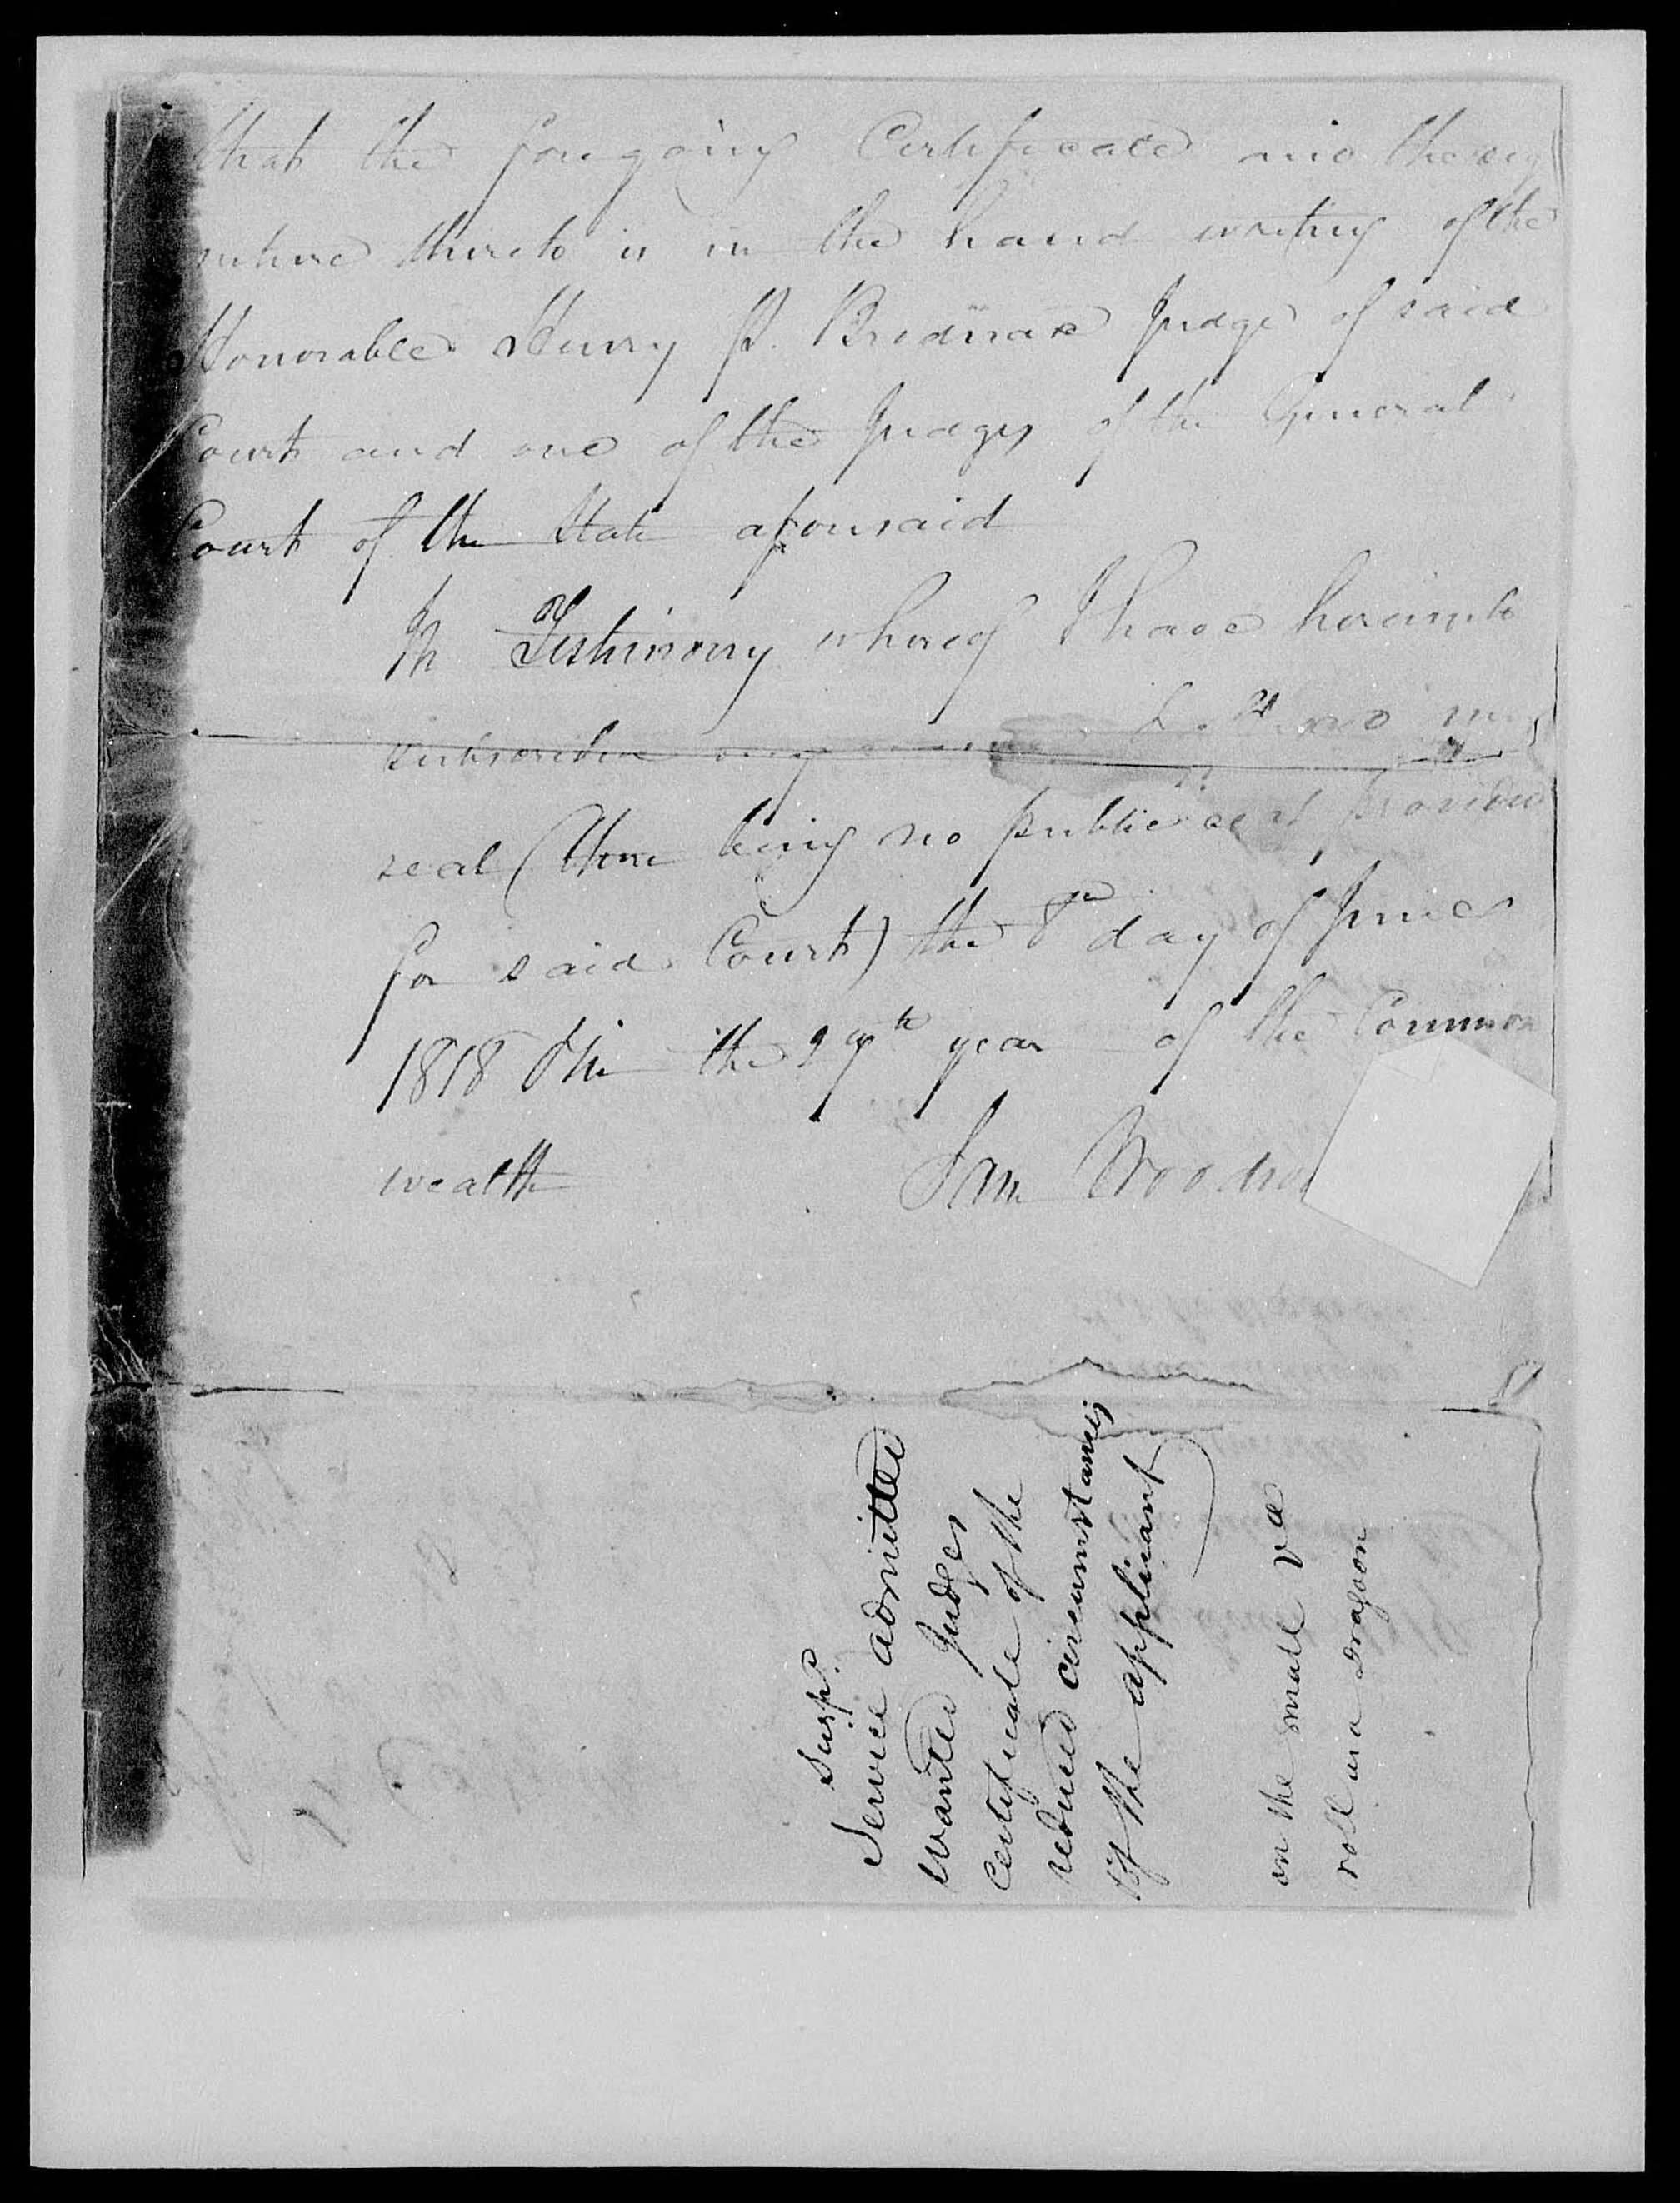 that the foregoing Certificate and the sig
nature thereto is in the hand writing of the
Honorable Henry E. Brodnax Judge of said
Court and one of the Judges of the General
Court of the State aforesaid
In Testimony whereof I have hereunto
subscribed my my
seal (there being no public seal provided
for said Court) the 8th day of June
1818 In the year of the Common
wealth
Sam Woodso
Susp.
Service admitted
wanted Judges
Certificate of the
reduced circumstances
of the applicant
on the small va
roll as a dragoon